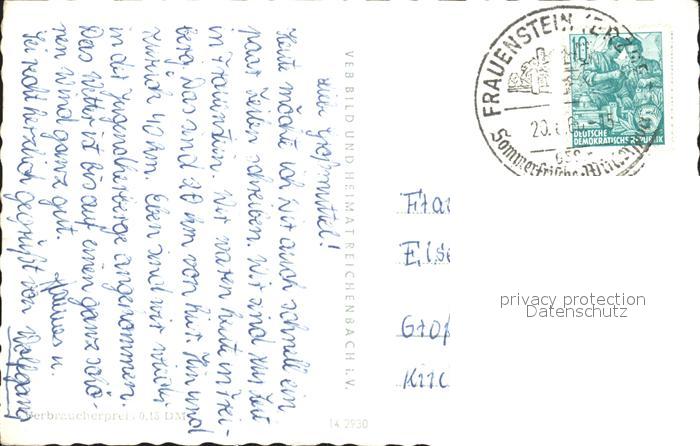 Liebe Großmuttel!
Heute möchte ich Dir auch schnell ein
paar Zeilen schreiben. Wir sind zur Zeit
in Frauenstein. Wir waren heute in Frei-
berg. Das sind 20 km von hier. Hin und
zurück 40 km. Eben sind wir wieder
in der Jugendherberge angekommen.
Das Wetter ist bis auf einen ganz schö-
nen Wind ganz gut.
Sei recht herzlich gegrüßt von
Hannes u.
Wolfgang
VEB BILD UND HEIMAT REICHENBACH i. V.
Verbraucherpreis 0,15 DM
14 2930
FRAUENSTEIN (ERZGEB
20.
Sommerfrische
10
5
DEUTSCHE
DEMOKRATISCHE REPUBLIK
Frau
Else
Groß
Kirc
privacy protection
Datenschutz